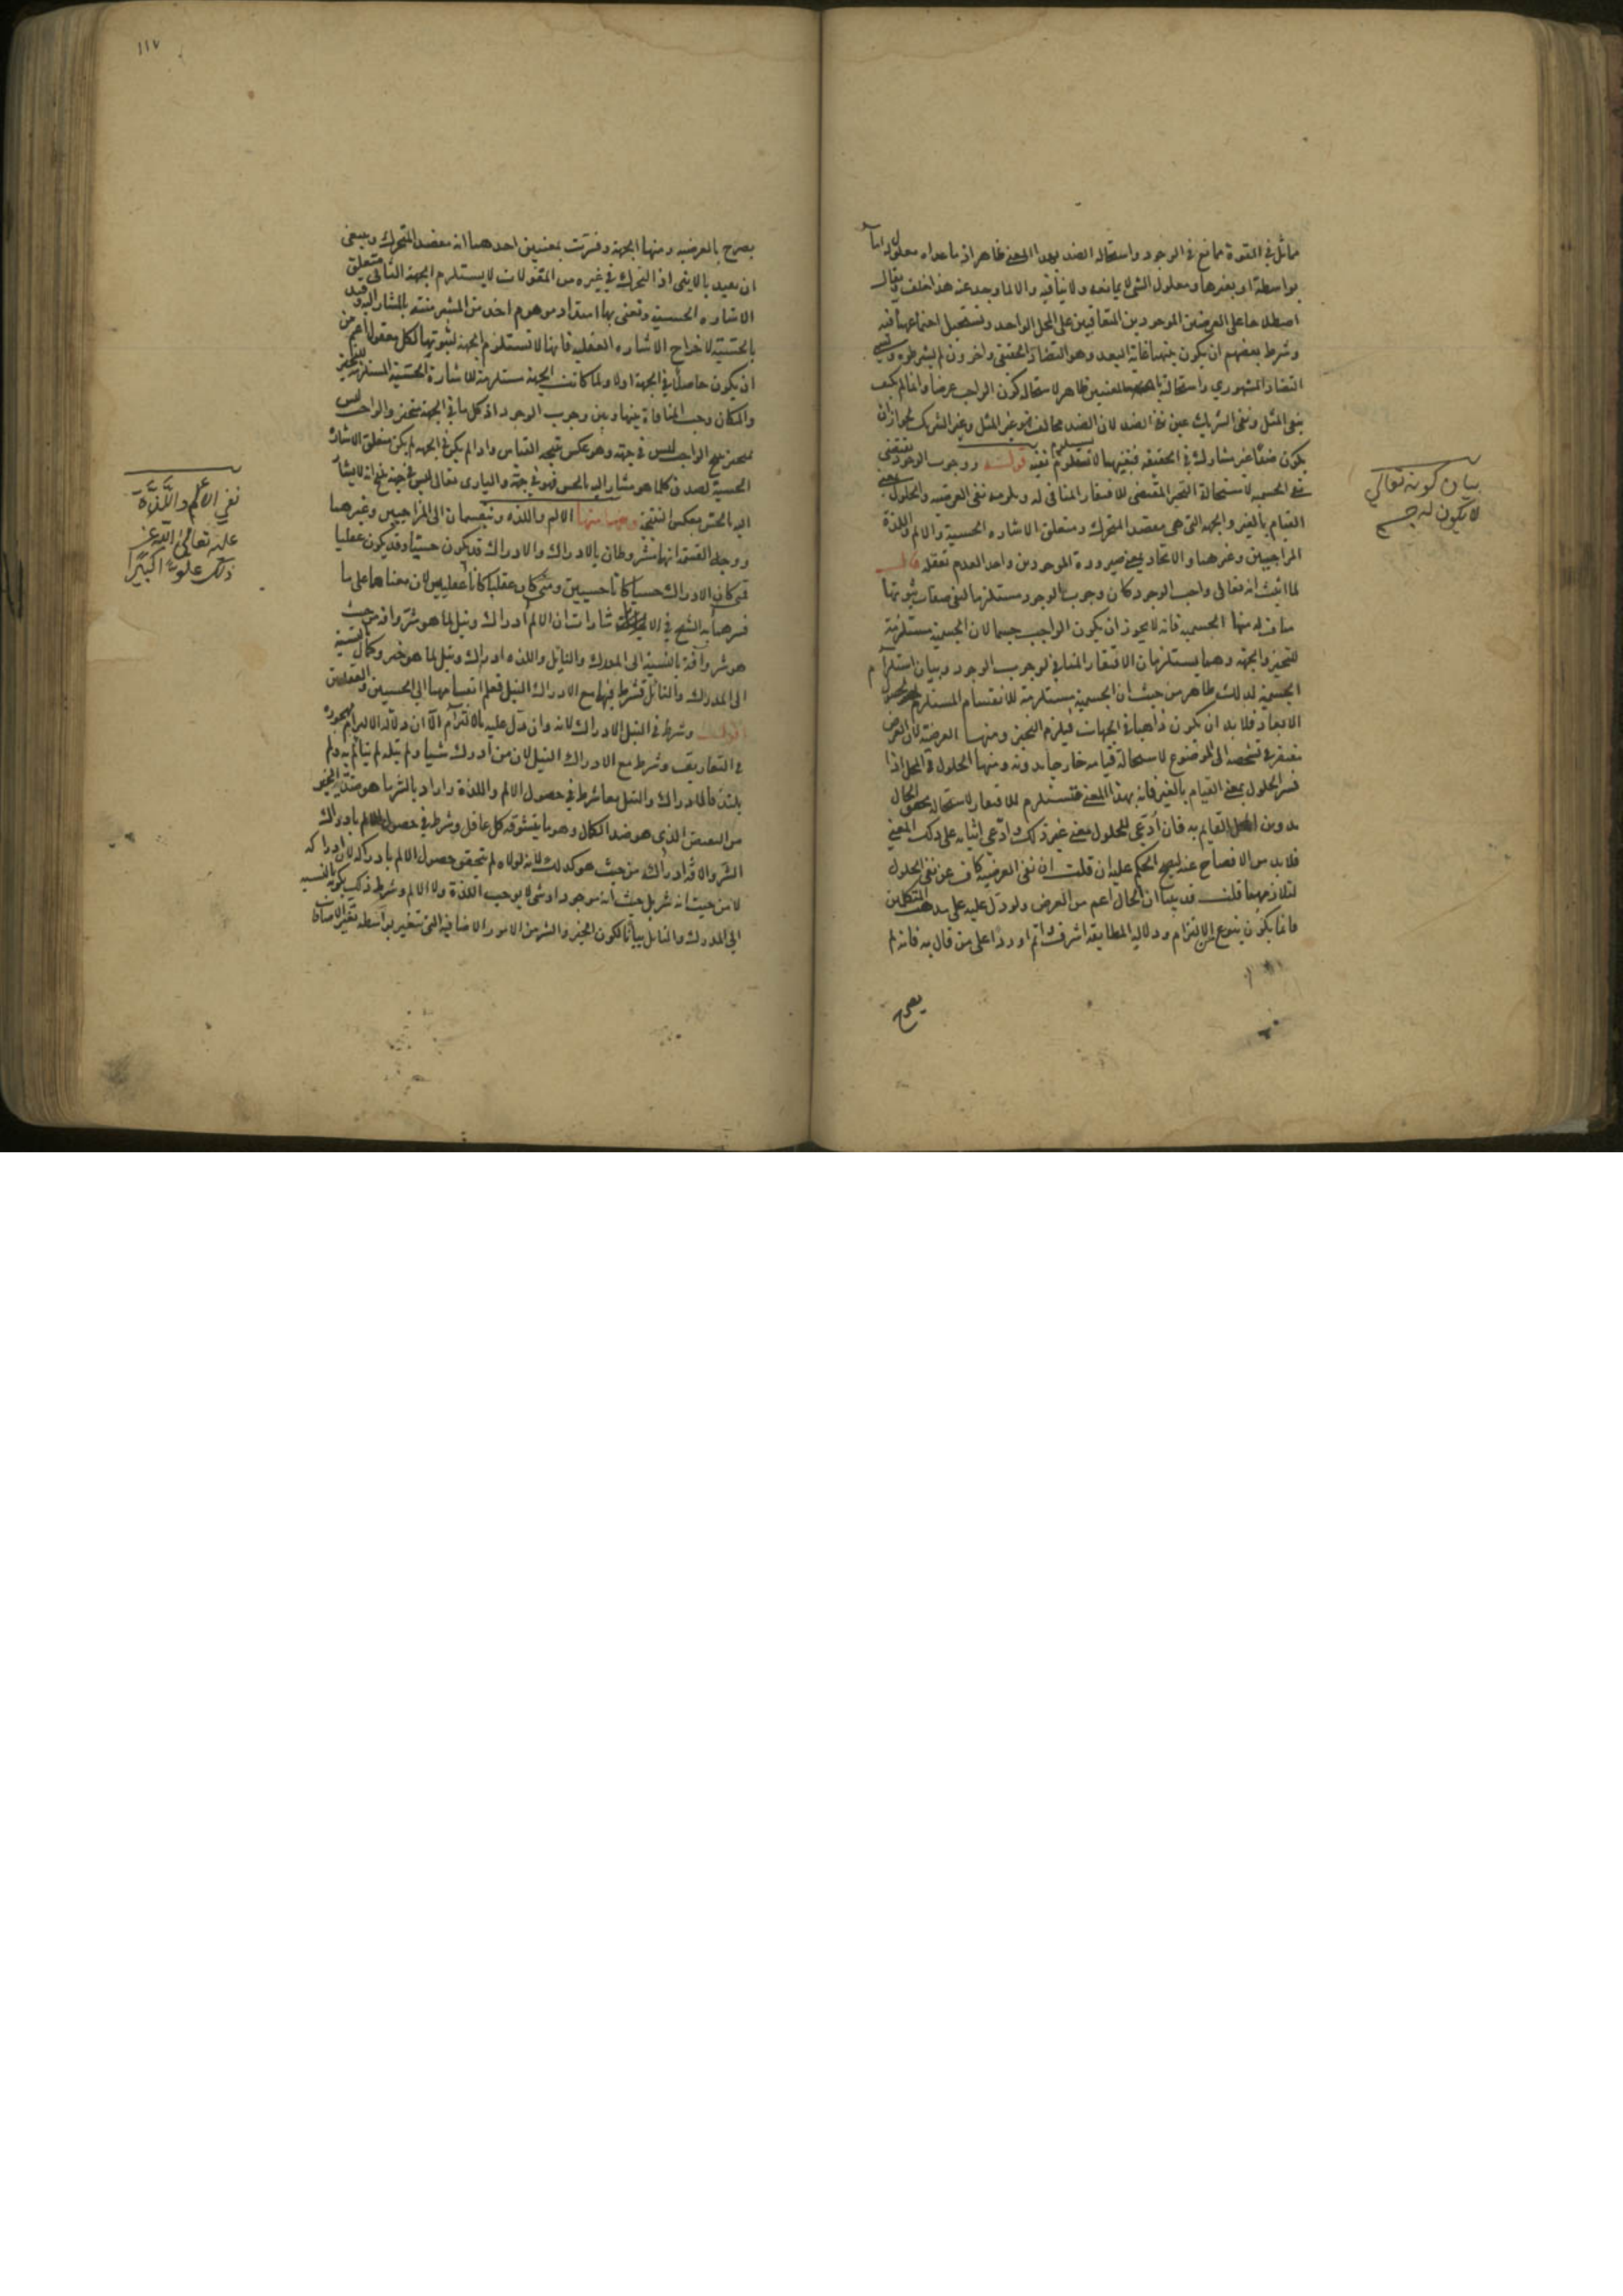 مماثل في القوة ممانع في الوجود واستحالة الضد بهذا المعنى ظاهر اذ ما عداه معلول له اما
بواسطة او بغيرها ومعلول الشي لا يمانعه ولا ينافيه والا لما وجد عنه هذا خلف ويقال
اصطلاحا على العرضين الموجودين المتعاقبين على المحل الواحد ويستحيل اجتماعهما فيه
وشرط بعضهم ان يكون بينهما غاية البعد وهو التضاد الحقيقي واخرون لم يشرطوه ويسمى
التضاد المشهوري واستحالته المعنيين ظاهر لاستحالة كون الواجب عرضا وانما لم يكتف
بنفي المثل ونفي الشريك عن نفي الضد لان الضد مخالف وغير المثل وغير الشريك لجواز ان
يكون ضدا غير مشارك في الحقيقة فنفيهما لا يستلزم نفيه قوله ووجوب الوجود يقتضي
نفي الجسمية لاستحالة التحيز المقتضي للافتقار المنافي له ويلزمه نفي العرضية والحلول بمعنى
القيام بالغير والجهة التي هي مقصد المتحرك ومتعلق الاشارة الحسية والالم واللذة
المزاجيين وغيرهما والاتحاد بمعنى صيرورة الموجودين واحدا لعدم تعقله قال
لما اثبت انه تعالى واجب الوجود كان وجوب الوجود مستلزما لنفي صفات ثبوتها
مناف له منها الجسمية فانه لا يجوز ان يكون الواجب جسما لان الجسمية مستلزمة
للتحيز والجهة وهما يستلزمان الافتقار المنافي لوجوب الوجود وبيان استلزام
الجسمية لذلك ظاهر من حيث ان الجسمية مستلزمة للانقسام المستلزم لحصول
الابعاد فلا بد ان يكون ذاهبا في الجهات فيلزم التحيز ومنها العرضية لان العرض
مفتقر في تشخصه الى الموضوع لاستحالة قيامه خارجا بدونه ومنها الحلول في المحل اذا
فسر الحلول بمعنى القيام بالغير فانه بهذا المعنى مستلزم للافتقار لاستحالة تحقق الحال
بدون المحل القايم به فان ادعي للحلول معنى غير ذلك وادعي اثباته على ذلك المعنى
فلا بد من الافصاح عنه ليصح الحكم عليه ان قلت ان نفي العرضية كاف عن نفي الحلول
لتلازمهما قلت قد بينا ان الحال اعم من العرض ولو دل عليه على مذهب المتكلمين
فانما يكون بنوع من الالتزام ودلالة المطابقة اشرف واتم او ردا على من قال به فانه لم
يصرح
بيان كونه تعالي
لا يكون له جسم
١١٧
يصرح بالعرضية ومنها الجهة وفسرت بمعنيين احدهما انه مقصد المتحرك وينبغي
ان يقيد بالايني اذ التحرك في غيره من المقولات لا يستلزم الجهة الثاني متعلق
الاشارة الحسية ونعني بها امتداد موهوم اخذ من المشير منته بالمشار اليه وقيد
بالحسية لاخراج الاشارة العقلية فانها لا تستلزم الجهة لثبوتها لكل معقول اعم من
ان يكون حاصلا في الجهة اولا ولما كانت الجهة مستلزمة للاشارة الحسية المستلزمة للتحيز
والمكان وجب المنافاة بينها وبين وجوب الوجود اذ كل ما في الجهة متحيز والواجب ليس
بمتحيز ينتج الواجب ليس في جهة وهو عكس نتيجة القياس واذا لم يكن في الجهة لم يكن متعلق الاشارة
الحسية لصدق كلما هو مشار اليه بالحس فهو في جهة والباري تعالى ليس في جهة ينتج انه لا يشار
اليه بالحس بعكس النتيجة ومنها الالم واللذة وينقسمان الى المزاجيين وغيرهما
ووجه القسمة انهما مشروطان بالادراك والادراك قد يكون حسيا وقد يكون عقليا
فمتى كان الادراك حسيا كانا حسيين ومتى كان عقليا كانا عقليين لان معناهما على ما
فسرهما به الشيخ في الاشارات ان الالم ادراك ونيل لما هو شر وافة من حيث
هو شر وآفة بالنسبة الى المدرك والنايل واللذة ادراك ونيل لما هو خير وكمال بالنسبة
الى المدرك والنائل فشرط فيهما مع الادراك النيل فعلم انقسامهما الى الحسيين والعقليين
قوله وشرط في النيل الادراك لانه وان دل عليه بالالتزام الا ان دلالة الالتزام مهجورة
في التعاريف وشرط مع الادراك النيل لان من ادرك شيئا ولم ينله لم يتالم به ولم
يلتذ فالادراك والنيل معا شرط في حصول الالم واللذة واراد بالشر ما هو ضد الخير
من النقص الذي هو ضد الكمال وهو ما يتشوقه كل عاقل وشرط في حصول الالم بادراك
الشر والافة ادراكه من حيث هو كذلك لانه لولاه لم يتحقق حصول الالم بادراكه لان ادراكه
لا من حيث انه شر بل من حيث انه موجود او شي لا يوجب اللذة ولا الالم وشرط ذلك بكونه بالنسبة
الى المدرك والنايل بيانا لكون الخير والشر من الامور الاضافية التي تتغير بواسطة تغير الاضافات
نفي الألم واللَّذَّة
عليه تعالى اللّه عن
ذلك علوًّا كبيرًا